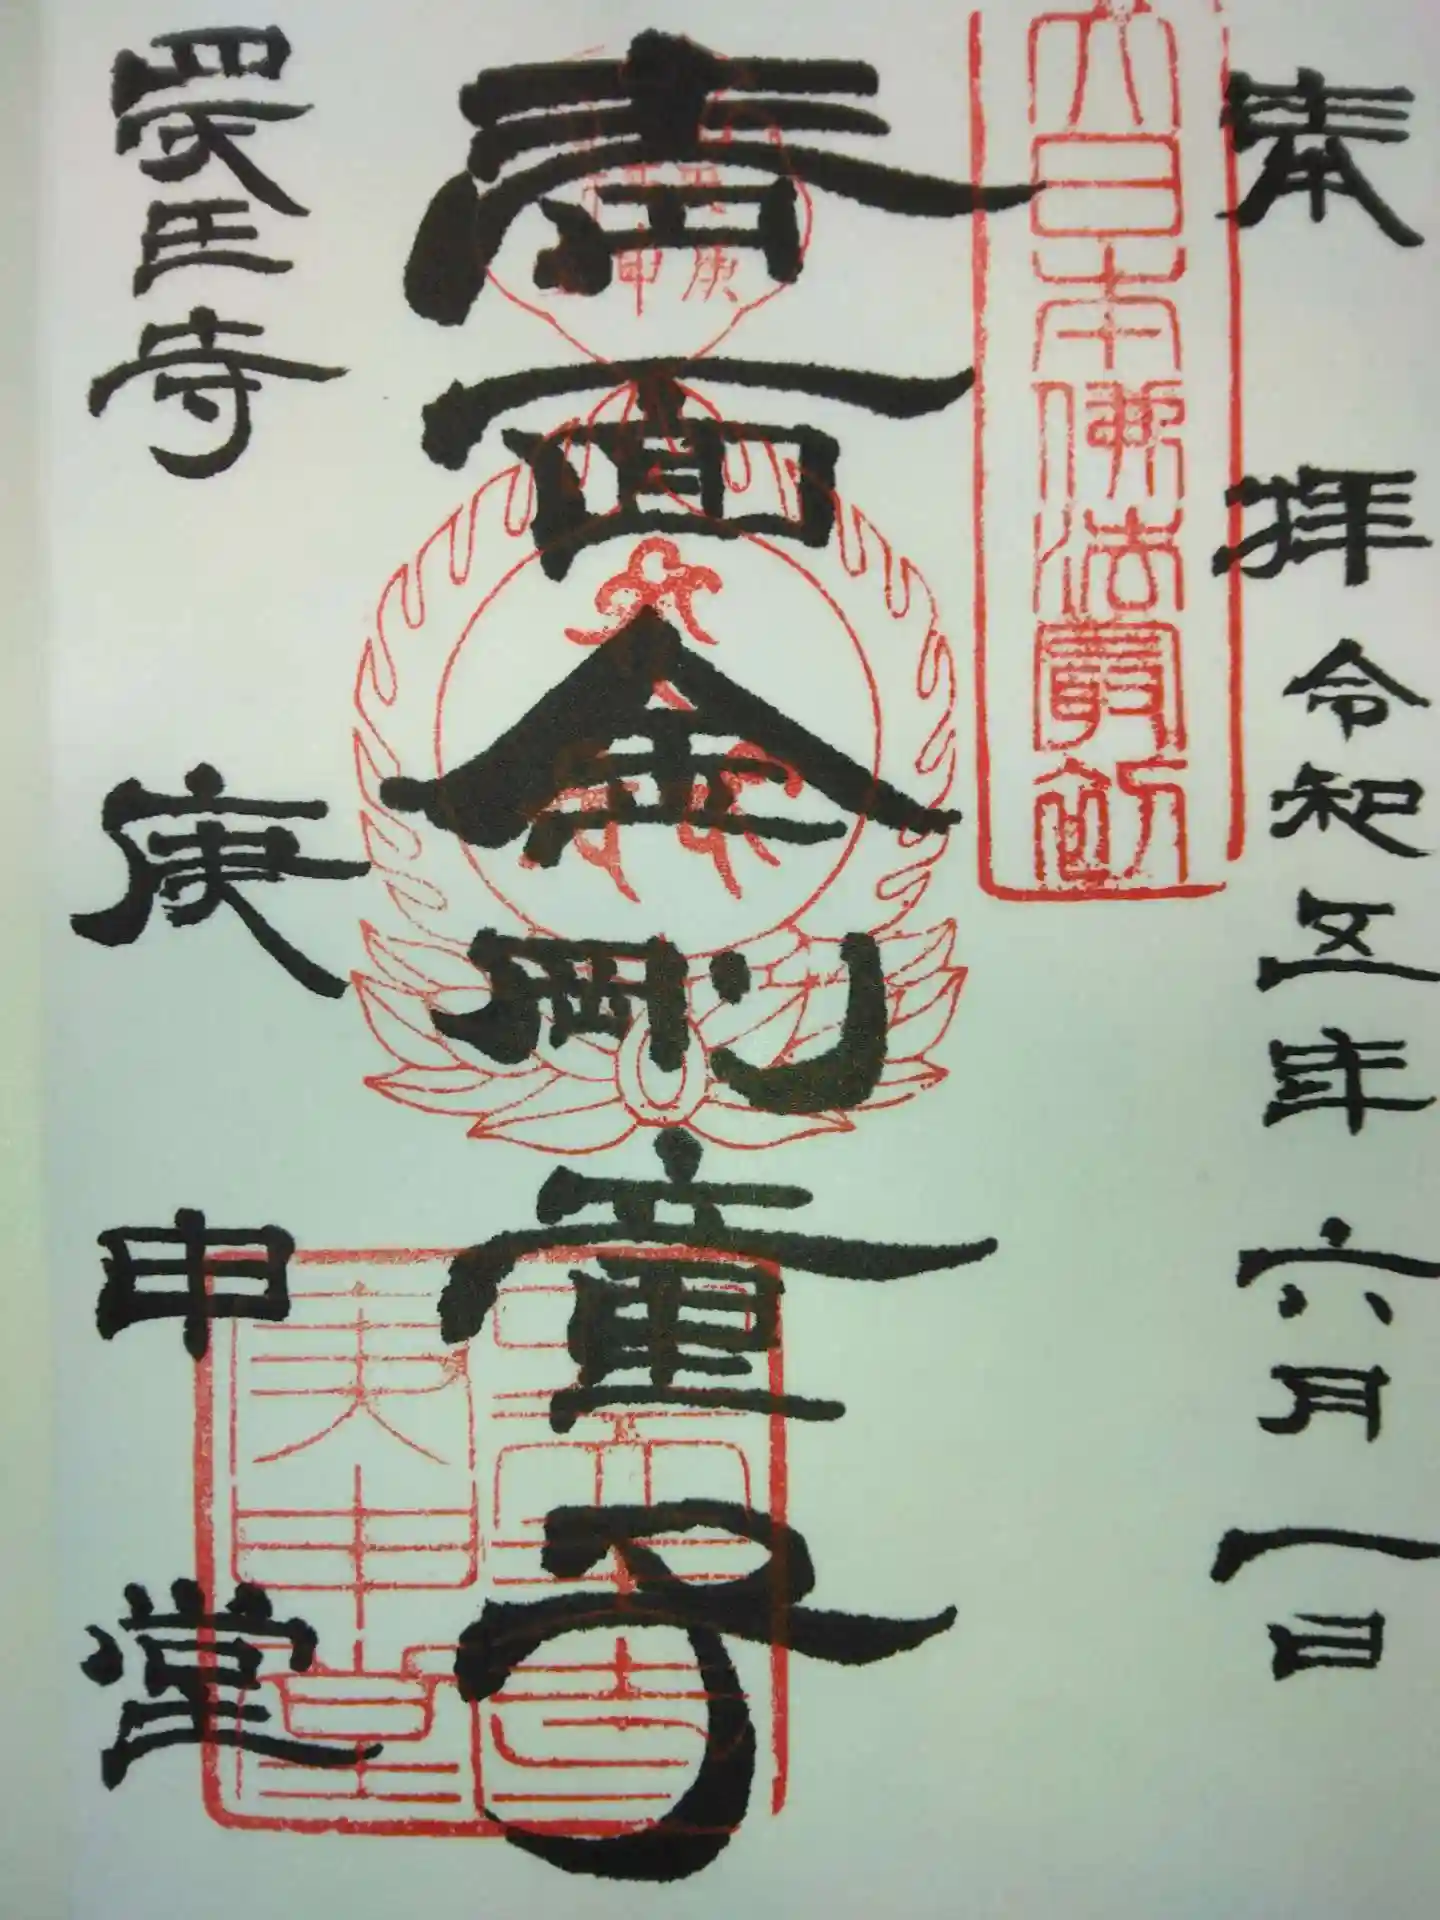 奉拝
令和五年六月一日
大日本佛法最初
青面金剛童子
庚申
四天王寺
庚申堂
庚申堂